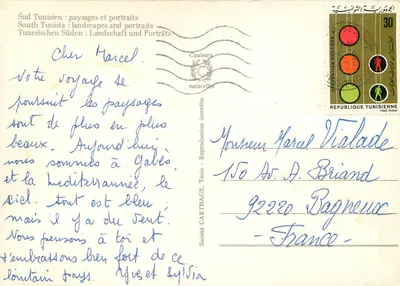 Sud Tunisien : paysages et portraits
South Tunisia : landscapes and portraits
Tunesischen Süden : Landschaft und Porträts
Cher Marcel.
Votre voyage se
poursuit les paysages
sont de plus en plus
beaux. Aujourd'hui
nous sommes à Gabès
et la méditerrannée, le
ciel. tout est bleu,
mais il y a du vent.
Nous pensons à toi et
t'embrassons bien fort de ce
lointain pays. Yves et Sylvia
Couleurs
naturelles
Société CARTHAGE, Tunis - Reproduction interdite
30
REPUBLIQUE TUNISIENNE
Monsieur Marcel Vialade
150 Av. A. Briand
92220. Bagneux
- France -